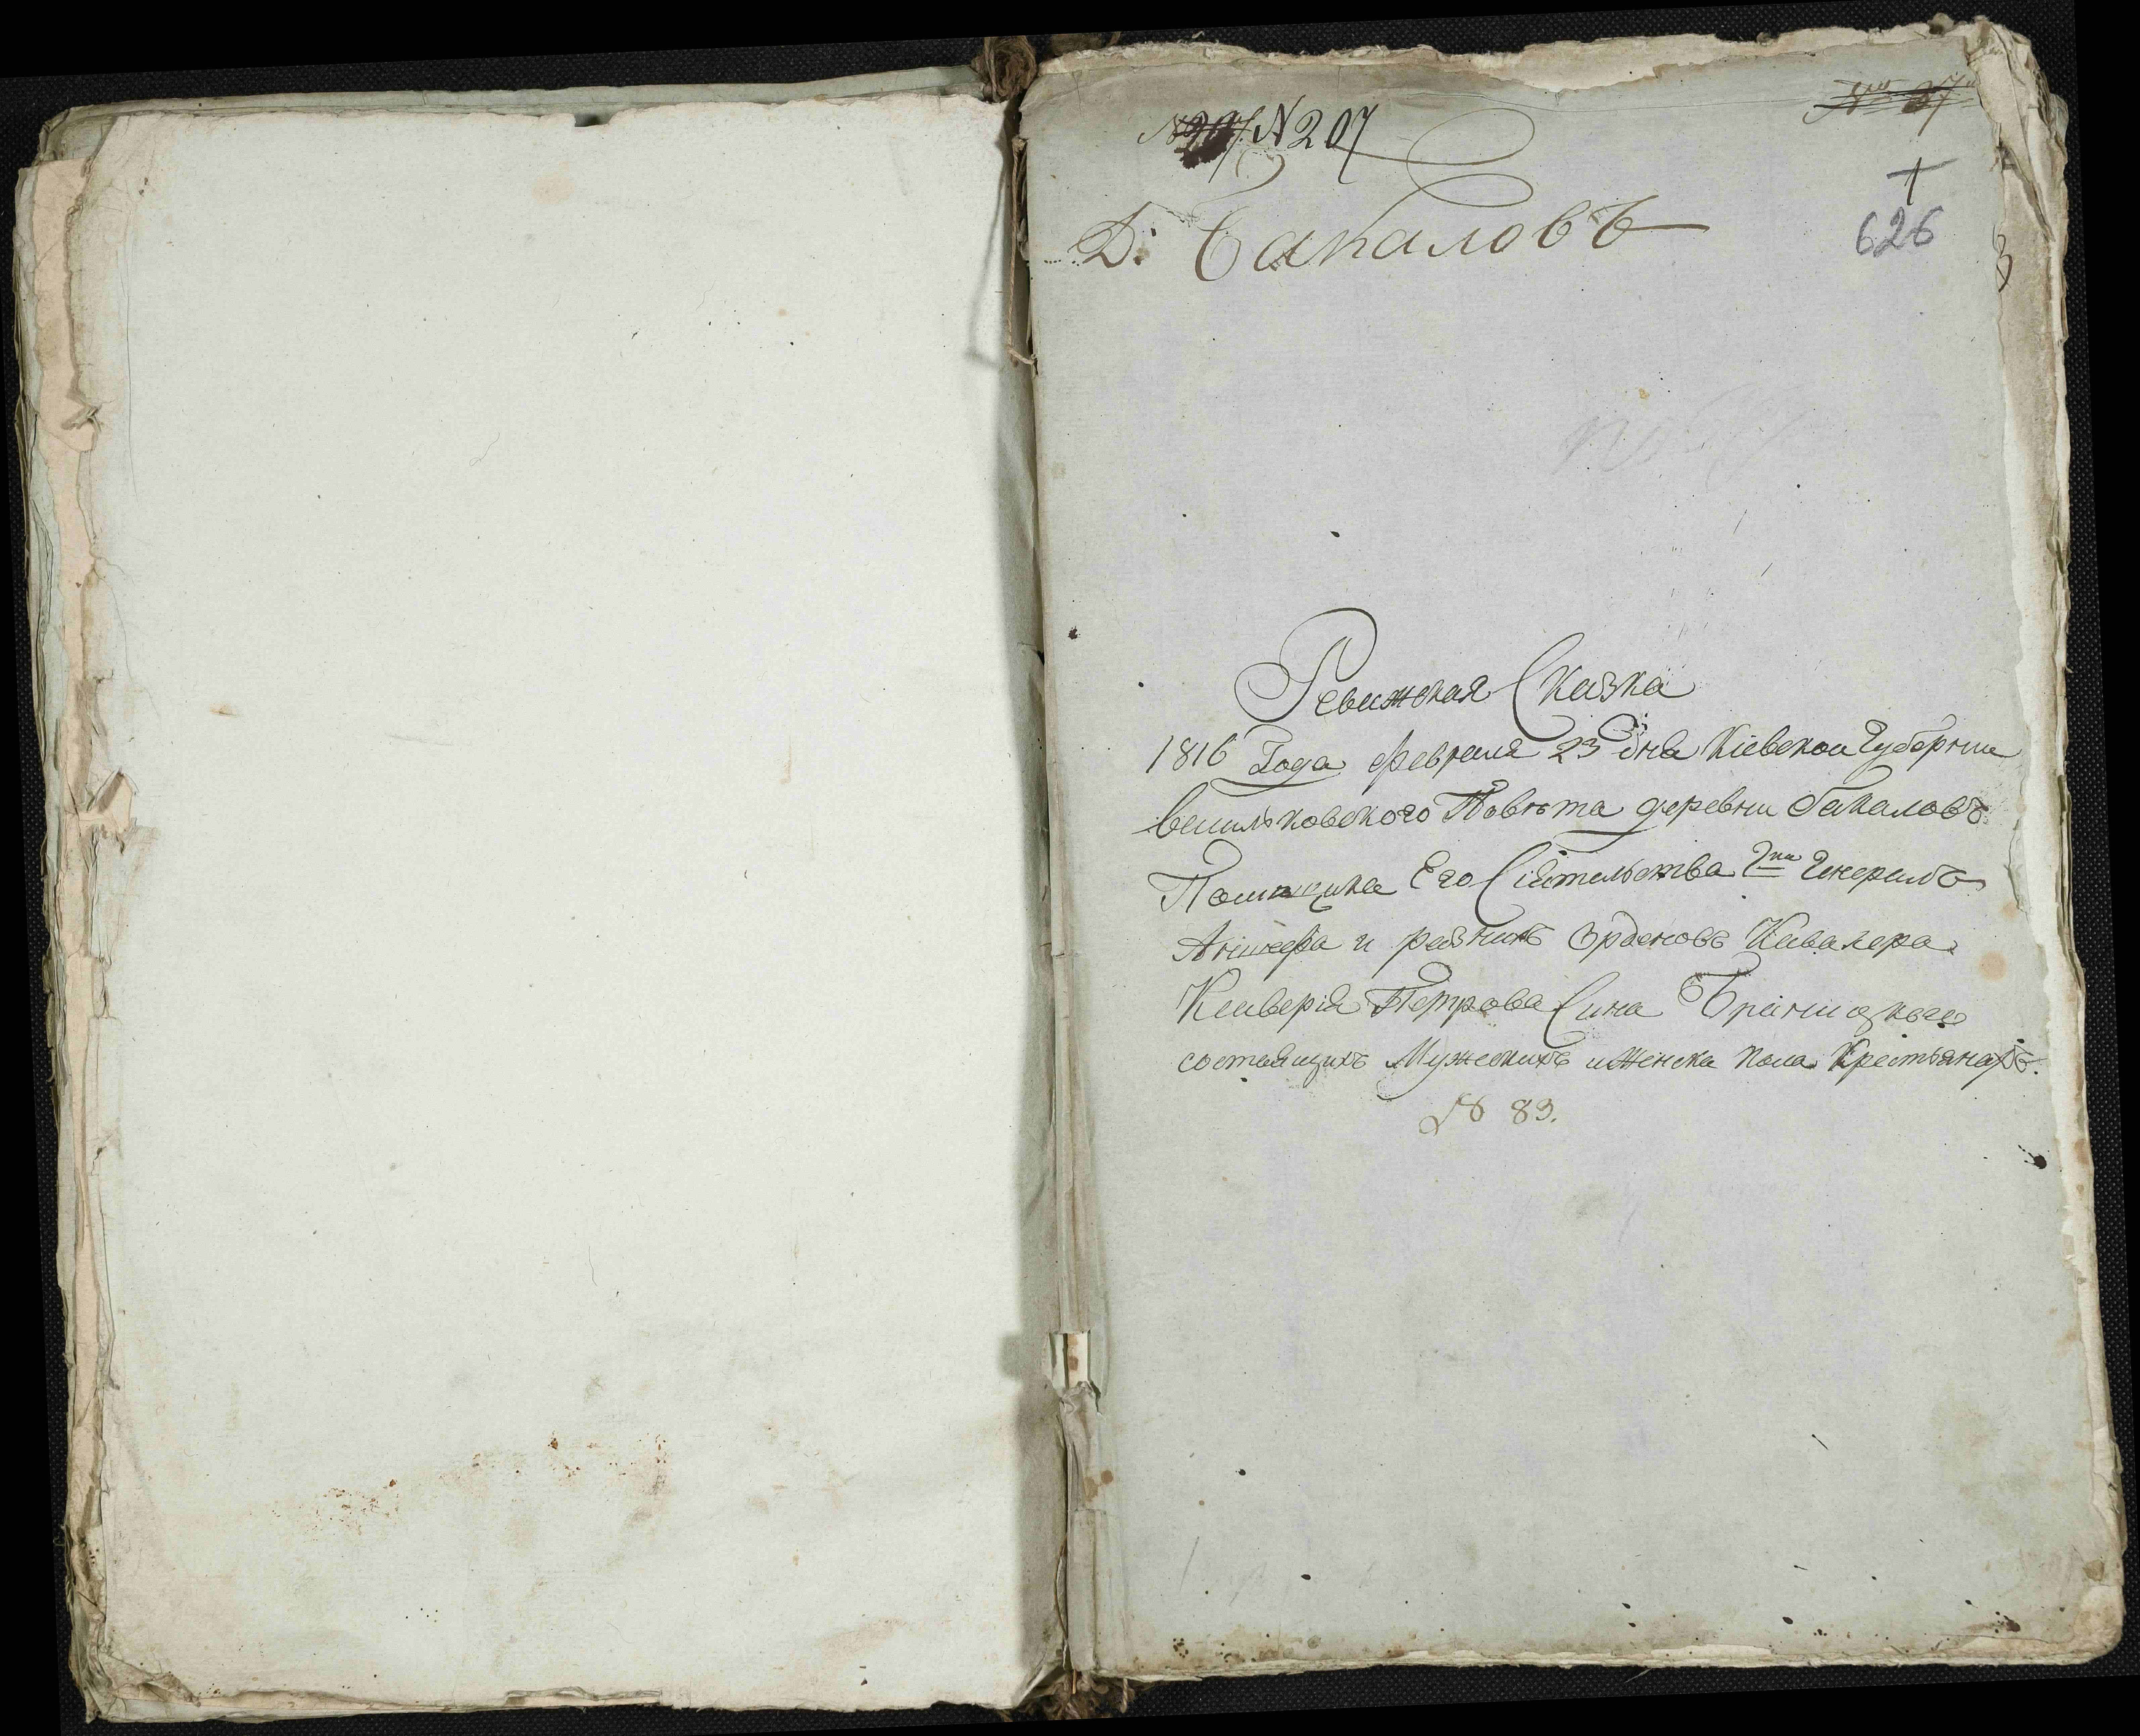 N 207
Д: Бакаловъ
626
Ревижская Сказка
1816 Года февраля 23 дня Кіевской Губернии
Василковского Повѣта деревни Бакаловъ
Помещика Его Сіятельства Гна Генералъ
Аншефа и разнихъ Орденовъ Кавалера
Ксаверія Петрова Сина Браницкаго
состоящихъ Мужескихъ и Женска пола Крестьянахъ.
№ 89.